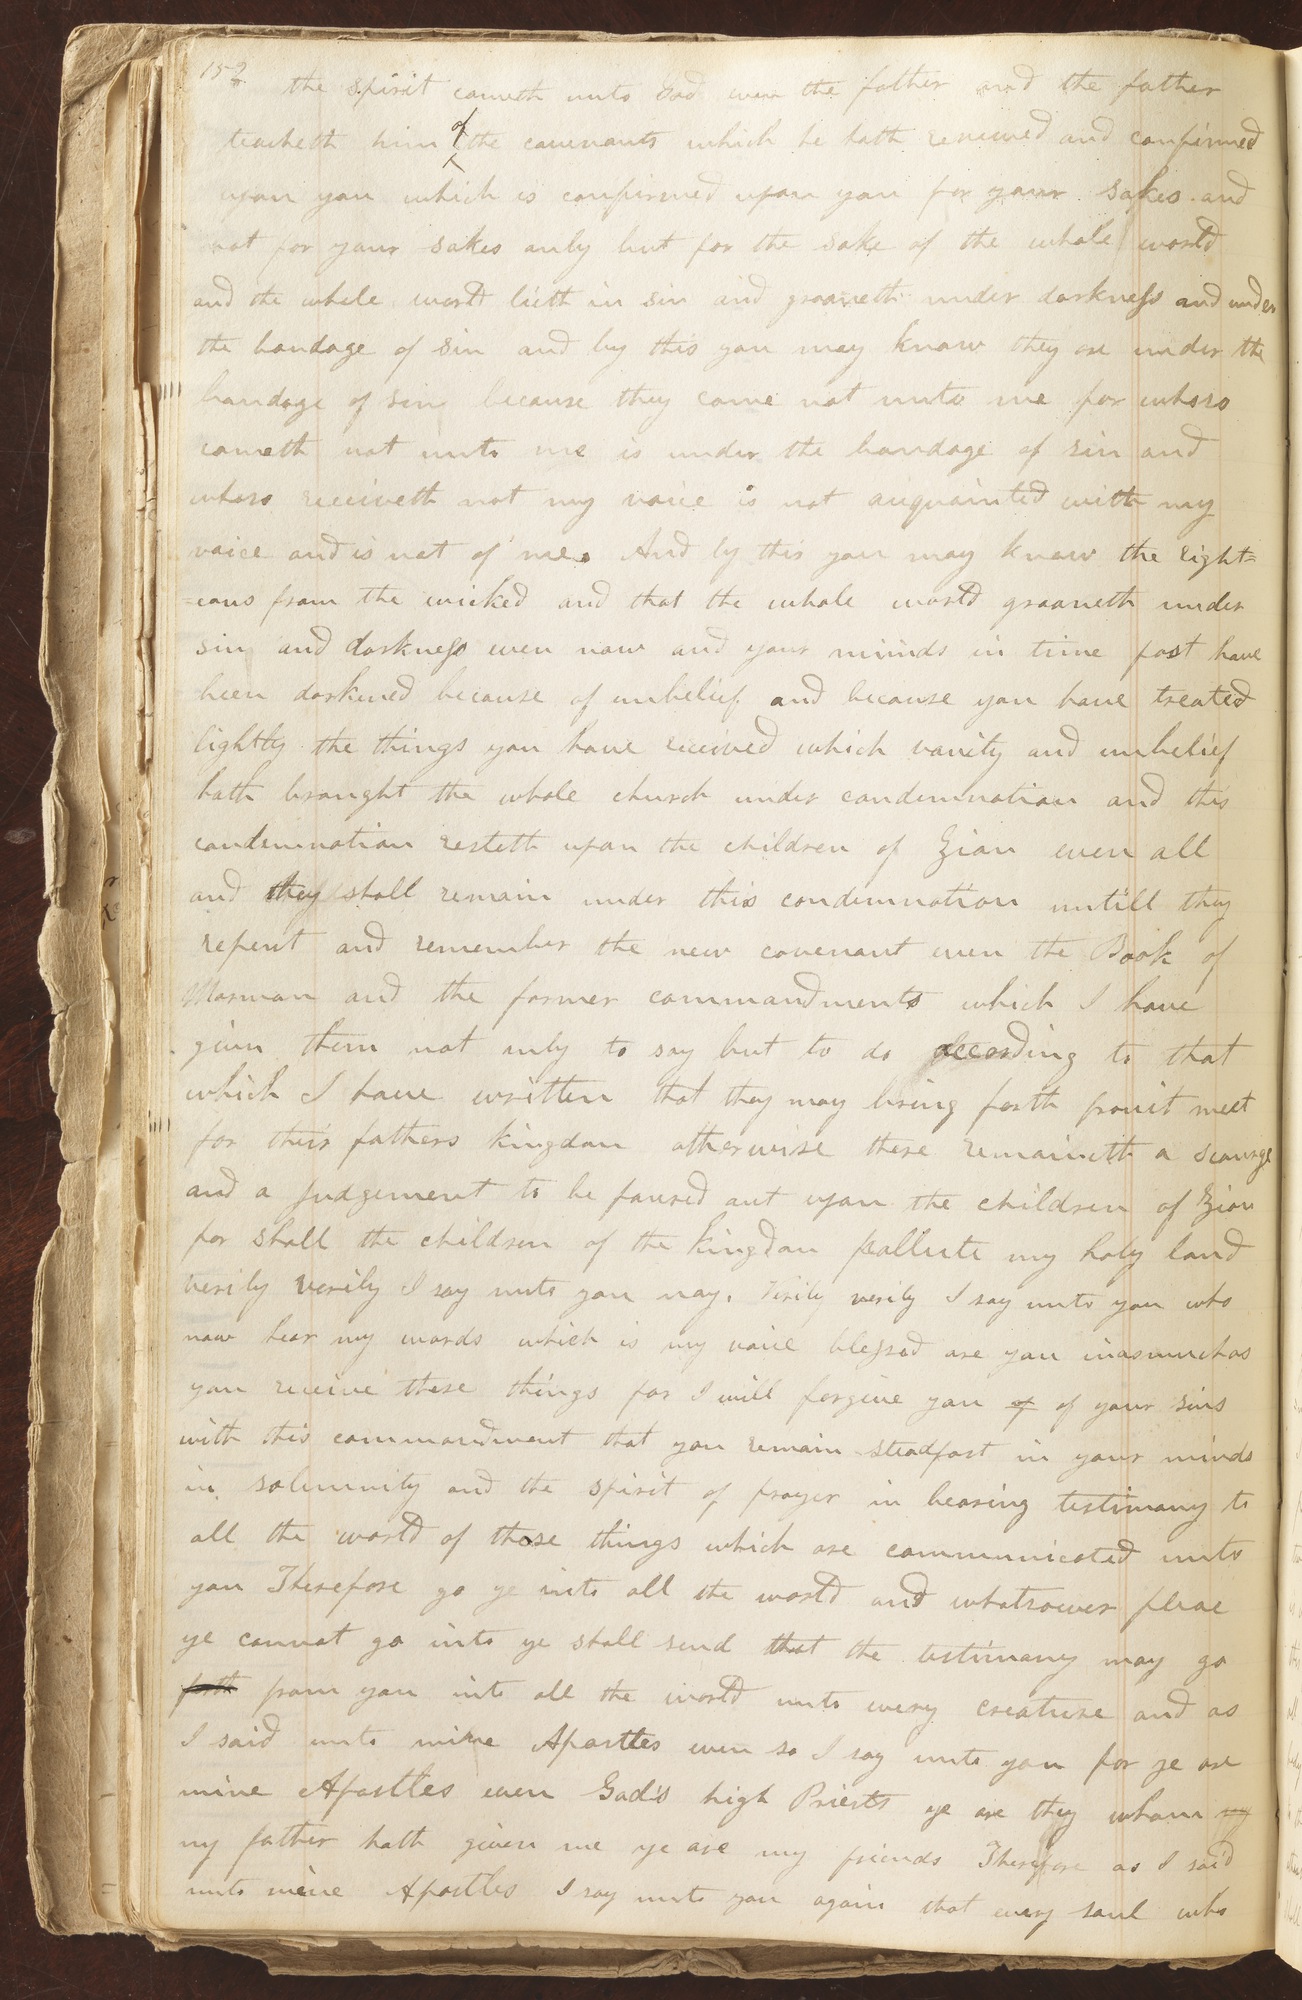 152 the spirit cometh unto God even the father and the father
teacheth him of the covenants which he hath renewed and confirmed
upon you which is confirmed upon you for your sakes and
not for your sakes only but for the sake of the whole world
and the whole world lieth in sin and groaneth under darkness and under
the bondage of sin and by this you may know they are under the
bondage of sin because they come not unto me for whoso
cometh not unto me is under the bondage of sin and
whoso receiveth not my voice is not acquainted with my
voice and is not of me. And by this you may know the right=
=eous from the wicked and that the whole world groaneth under
sin and darkness even now and your minds in time past have
been darkened because of unbelief and because you have treated
lightly the things you have received which vanity and unbelief
hath brought the whole church under condemnation and this
condemnation resteth upon the children of Zion even all
and they shall remain under this condemnation untill they
repent and remember the new covenant even the Book of
Mormon and the former commandments which I have
given them not only to say but to do according to that
which I have written that they may bring forth frouit meet
for their fathers kingdom otherwise there remaineth a scourge
and a judgement to be poured out upon the children of Zion
for shall the children of the kingdom pollute my holy land
verily verily I say unto you nay. Verily verily I say unto you who
now hear my words which is my voice blessed are you inasmuchas
you receive these things for I will forgive you of of your sins
with this commandment that you remain steadfast in your minds
in solemnity and the spirit of prayer in bearing testimony to
all the world of those things which are communicated unto
you Therefore go ye into all the world and whatsoever place
ye cannot go into ye shall send that the testimony may go
forth from you into all the world unto every creature and as
I said unto mine Apostles even so I say unto you for ye are
mine Apostles even God's high Priests ye are they whom my
my father hath given me ye are my friends Therefore as I said
unto mine Apostles I say unto you again that every soul who